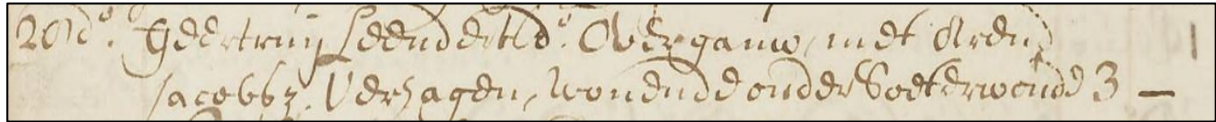 20 do. Geertruij Leendertsdr. Overgauw, met Arend
Jacobsz. Verhagen, wonende onder Soeterwoude 3 —